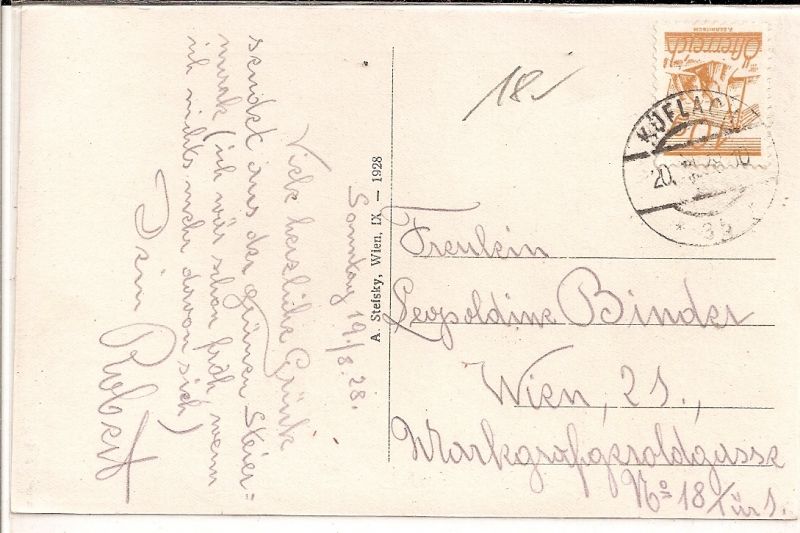 Sonntag 19./8. 28.
Viele herzliche Grüße
sendet aus der grünen Steier=
mark (ich wär schon froh, wenn
ich nichts mehr davon sieh)
Dein Robert
A. Stefsky, Wien, IX. — 1928
18
Österreich
KÖFLACH
20.
* 3b
Freulein
Leopoldine Binder
Wien, 21.,
Markgrafgeroldgasse
No 18/Tür 1.